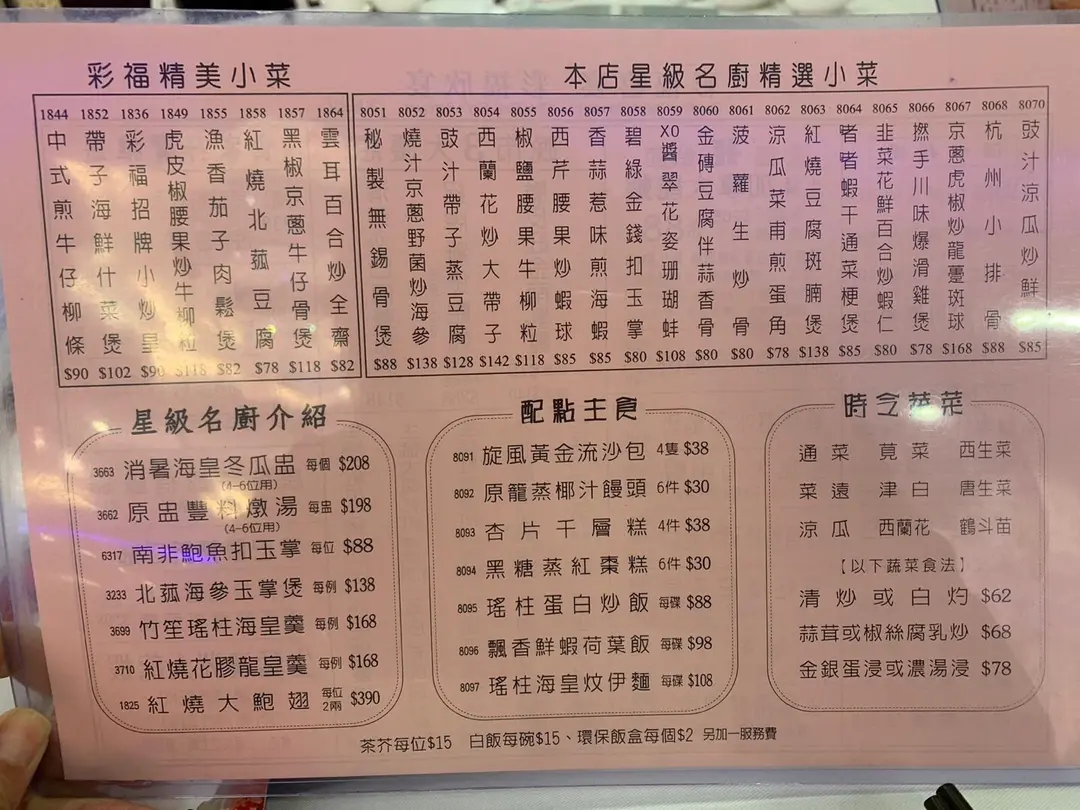 彩福精美小菜
1844 中式煎牛仔柳條 $90
1852 帶子海鮮什菜煲 $102
1836 彩福招牌小炒皇 $90
1849 虎皮椒腰果炒牛柳粒 $118
1855 漁香茄子肉鬆煲 $82
1858 紅燒北菰豆腐 $78
1857 黑椒京蔥牛仔骨煲 $118
1864 雲耳百合炒全齋 $82
本店星級名廚精選小菜
8051 秘製無錫骨煲 $88
8052 燒汁京蔥野菌炒海參 $138
8053 豉汁帶子蒸豆腐 $128
8054 西蘭花炒大帶子 $142
8055 椒鹽腰果牛柳粒 $118
8056 西芹腰果炒蝦球 $85
8057 香蒜惹味煎海蝦 $85
8058 碧綠金錢扣玉掌 $80
8059 XO醬翠花姿珊瑚蚌 $108
8060 金磚豆腐伴蒜香骨 $80
8061 菠蘿生炒骨 $80
8062 涼瓜菜甫煎蛋角 $78
8063 紅燒豆腐斑腩煲 $138
8064 啫啫蝦干通菜梗煲 $85
8065 韭菜花鮮百合炒蝦仁 $80
8066 撚手川味爆滑雞煲 $78
8067 京蔥虎椒炒龍躉斑球 $168
8068 杭州小排骨 $88
8070 豉汁涼瓜炒鮮 $85
星級名廚介紹
3663 消暑海皇冬瓜盅 每個 $208
(4-6位用)
3662 原盅豐料燉湯 每盅 $198
(4-6位用)
6317 南非鮑魚扣玉掌 每位 $88
3233 北菰海參玉掌煲 每例 $138
3699 竹笙瑤柱海皇羹 每例 $168
3710 紅燒花膠龍皇羹 每例 $168
1825 紅燒大鮑翅 每位2兩 $390
配點主食
8091 旋風黃金流沙包 4隻 $38
8092 原籠蒸椰汁饅頭 6件 $30
8093 杏片千層糕 4件 $38
8094 黑糖蒸紅棗糕 6件 $30
8095 瑤柱蛋白炒飯 每碟 $88
8096 飄香鮮蝦荷葉飯 每碟 $98
8097 瑤柱海皇炆伊麵 每碟 $108
時令蔬菜
通菜 莧菜 西生菜
菜遠 津白 唐生菜
涼瓜 西蘭花 鶴斗苗
【以下蔬菜食法】
清炒或白灼 $62
蒜茸或椒絲腐乳炒 $68
金銀蛋浸或濃湯浸 $78
茶芥每位$15 白飯每碗$15、環保飯盒每個$2 另加一服務費